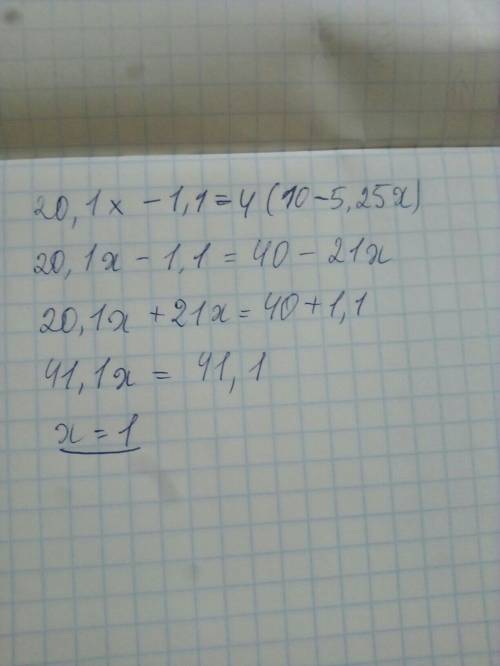 20,1x - 1,1 = 4 (10 - 5,25x)
20,1x - 1,1 = 40 - 21x
20,1x + 21x = 40 + 1,1
41,1x = 41,1
x = 1